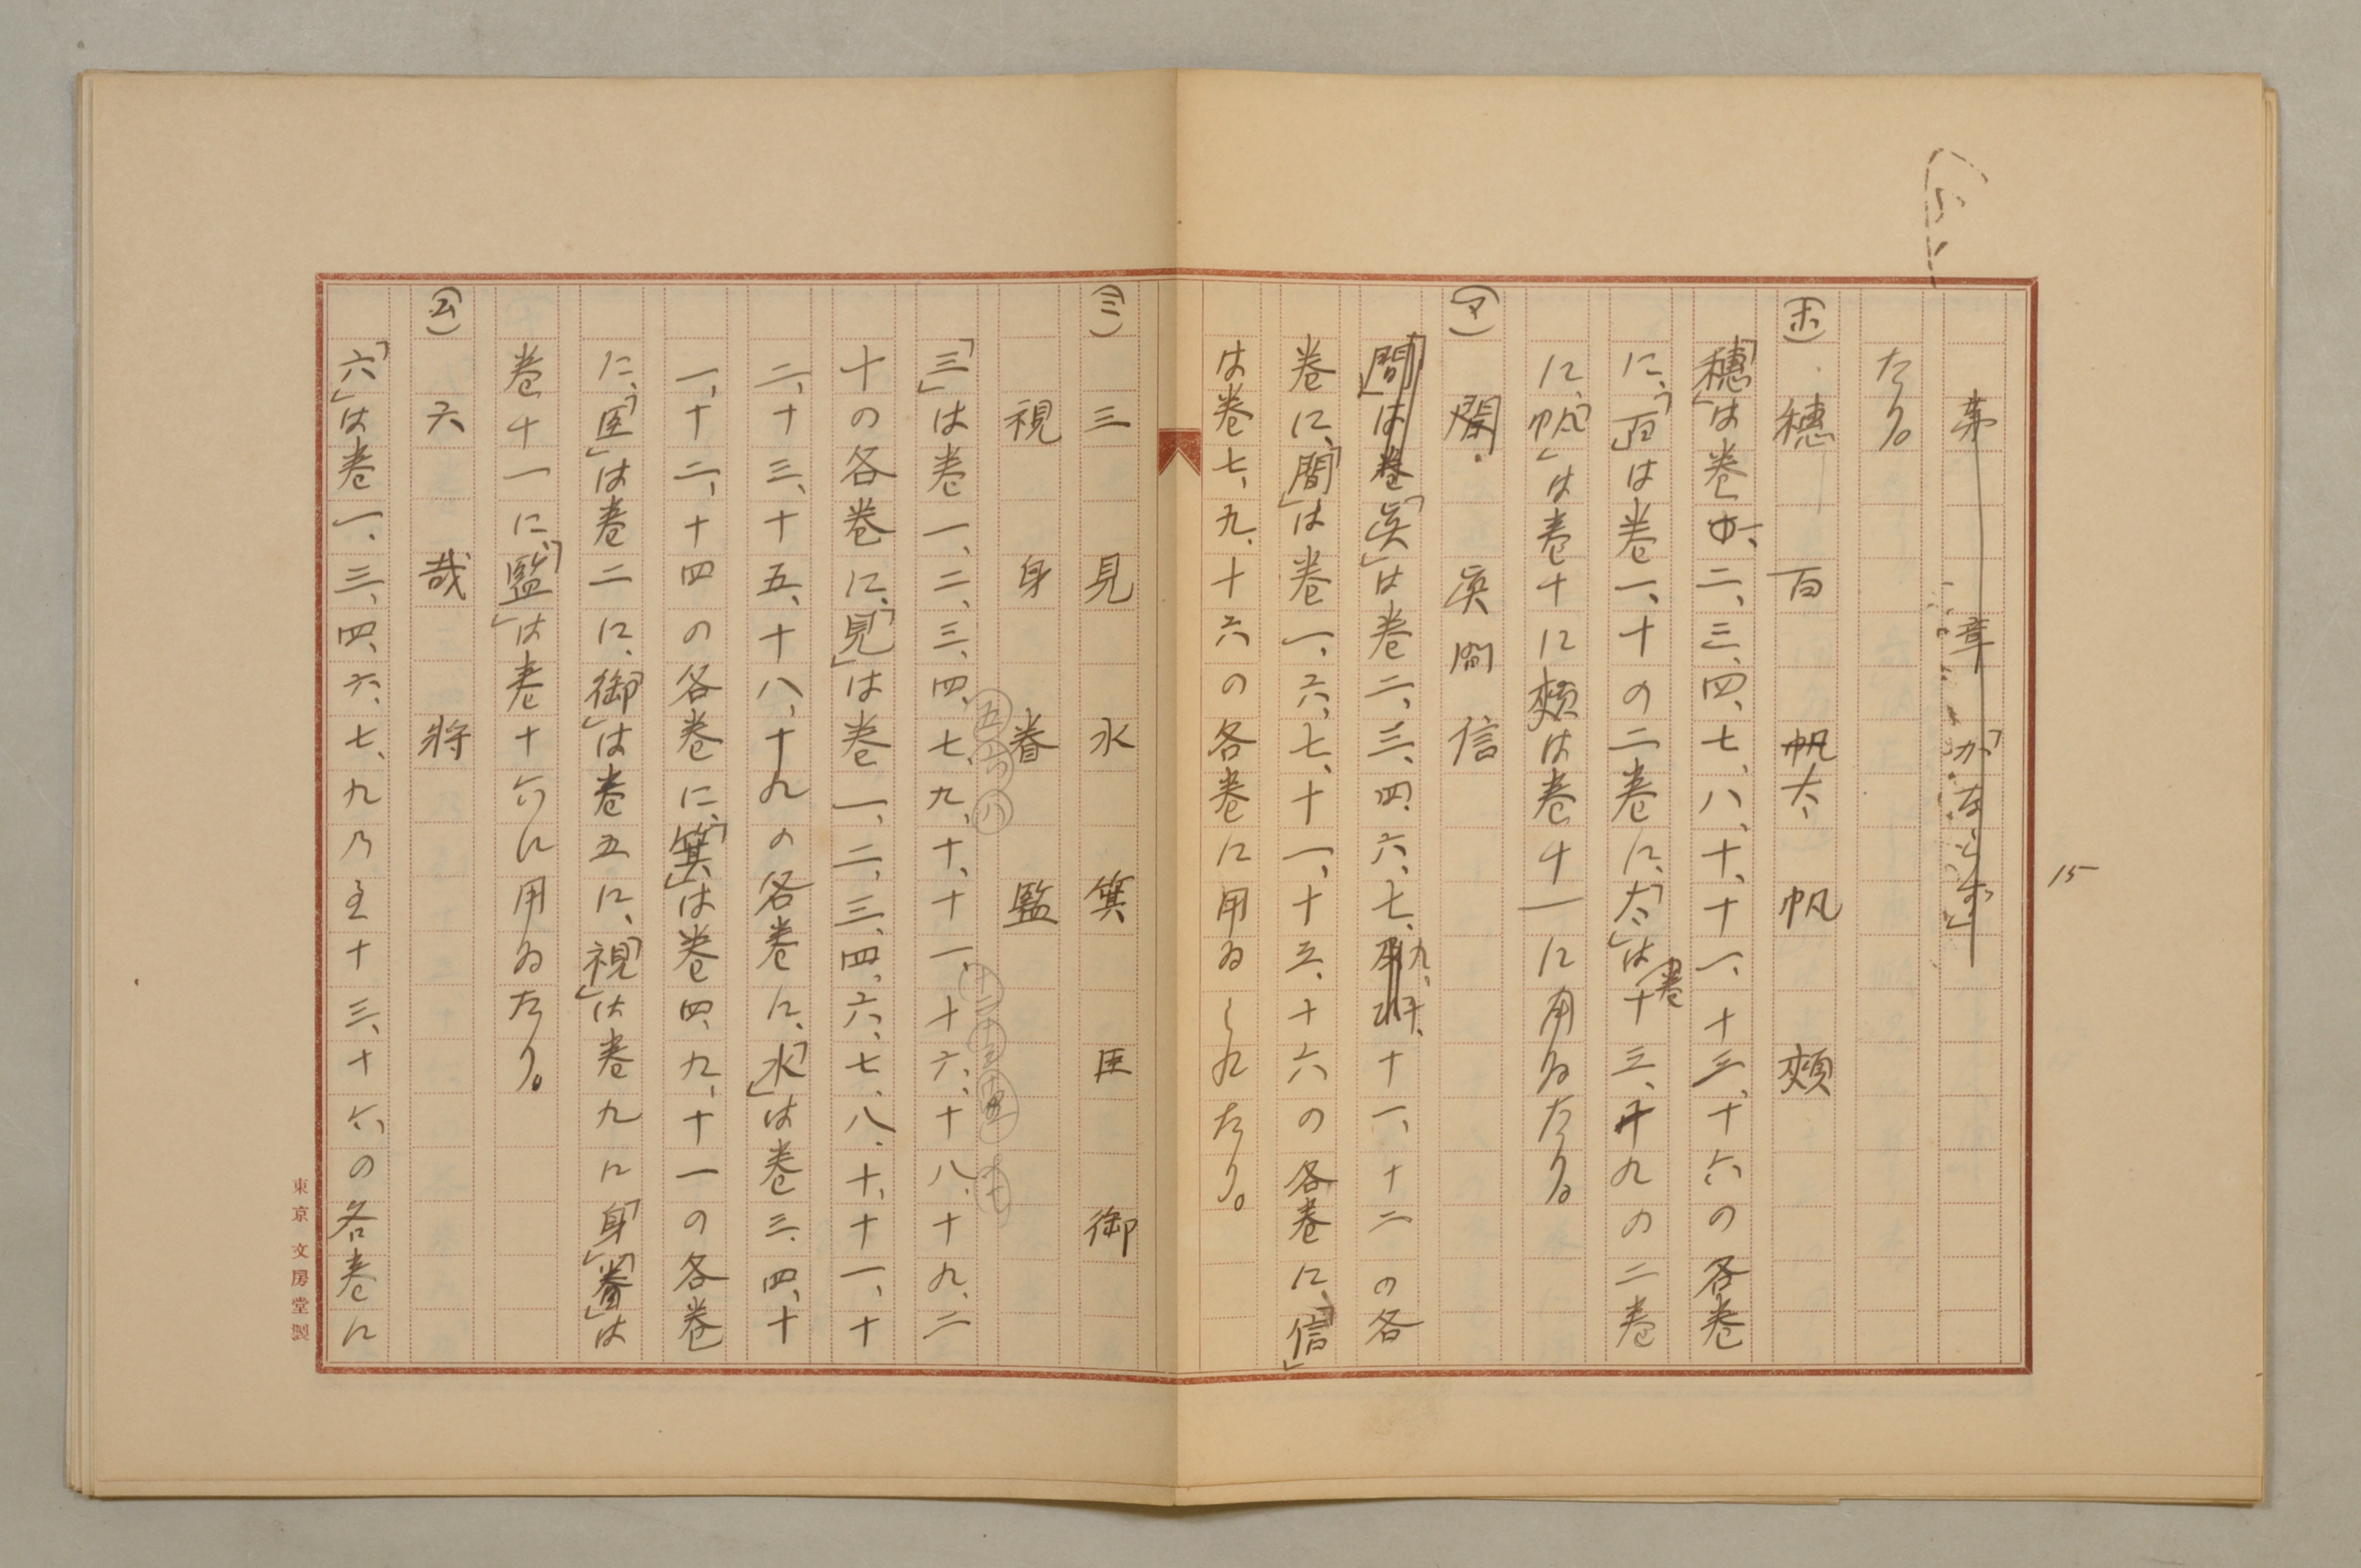 15
第 章 「かなとす」
たり。
(ホ) 穂 百 帆 太 帆 頬
「穂」は巻二、三、四、七、八、十、十一、十三、十六の各巻
に、「百」は巻一、十の二巻に、「太」は巻十三、十九の二巻
に、「帆」は巻十に頬は巻十一に用ゐたり。
(マ) 間 眞 間 信
「間」は巻「眞」は巻二、三、四、六、七、九、十、十一、十二の各
巻に、「間」は巻一、六、七、十一、十三、十六の各巻に、「信」
は巻七、九、十六の各巻に用ゐられたり。
(ミ) 三 見 水 箕 臣 御
視 身 眷 監
五 六 八 十二 十三 十五 十七
「三」は巻一、二、三、四、七、九、十、十一、十六、十八、十九、二
十の各巻に、「見」は巻一、二、三、四、六、七、八、十、十一、十
二、十三、十五、十八、十九の各巻に、「水」は巻三、四、十
一、十二、十四の各巻に、「箕」は巻四、九、十一の各巻
に、「臣」は巻二に、「御」は巻五に、「視」は巻九に「身」「眷」は
巻十一に、「監」は巻十六に用ゐたり。
(ム) 六 哉 将
「六」は巻一、三、四、六、七、九乃至十三、十六の各巻に
東京 文房堂製